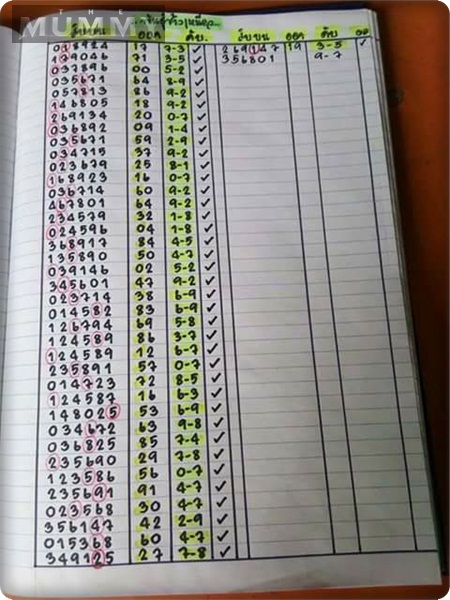 THE
MUMM
วิ่งบน ออก ดับ วิ่งบน ออก ดับ
018924 17 7-3 ✓ 269147 19 3-5 ✓
179046 71 3-5 ✓ 356801 9-7
037896 00 5-2 ✓
035671 64 8-9 ✓
057813 86 9-2 ✓
146805 18 9-2 ✓
269134 20 0-7 ✓
036892 09 1-4 ✓
035671 59 2-9 ✓
034715 37 9-2 ✓
023679 25 8-1 ✓
168923 16 0-7 ✓
036714 60 9-2 ✓
467801 64 9-2 ✓
234579 32 1-8 ✓
024596 04 1-8 ✓
368917 84 4-5 ✓
135890 50 4-7 ✓
039146 02 5-2 ✓
345601 47 9-2 ✓
023714 38 6-9 ✓
014582 83 6-9 ✓
126794 69 5-8 ✓
124589 86 3-7 ✓
124589 12 6-7 ✓
235891 57 0-7 ✓
014723 72 8-5 ✓
124587 16 6-3 ✓
148025 53 6-9 ✓
034672 63 9-8 ✓
036825 85 7-4 ✓
235690 29 7-8 ✓
123586 56 0-7 ✓
235691 91 4-7 ✓
023568 30 4-7 ✓
356147 42 2-9 ✓
015368 60 4-7 ✓
349125 27 7-8 ✓